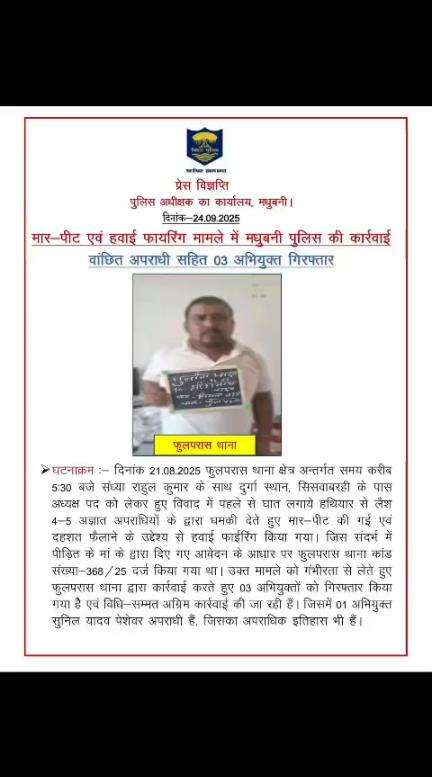 बिहार पुलिस
प्रेस विज्ञप्ति
पुलिस अधीक्षक का कार्यालय, मधुबनी।
दिनांक–24.09.2025
मार–पीट एवं हवाई फायरिंग मामले में मधुबनी पुलिस की कार्रवाई
वांछित अपराधी सहित 03 अभियुक्त गिरफ्तार
फुलपरास थाना
➢घटनाक्रम :– दिनांक 21.08.2025 फुलपरास थाना क्षेत्र अन्तर्गत समय करीब
5:30 बजे संध्या राहुल कुमार के साथ दुर्गा स्थान, सिसवाबरही के पास
अध्यक्ष पद को लेकर हुए विवाद में पहले से घात लगाये हथियार से लैश
4–5 अज्ञात अपराधियों के द्वारा धमकी देते हुए मार–पीट की गई एवं
दहशत फैलाने के उद्देश्य से हवाई फाईरिंग किया गया। जिस संदर्भ में
पीड़ित के मां के द्वारा दिए गए आवेदन के आधार पर फुलपरास थाना कांड
संख्या–368/25 दर्ज किया गया था। उक्त मामले को गंभीरता से लेते हुए
फुलपरास थाना द्वारा कार्रवाई करते हुए 03 अभियुक्तों को गिरफ्तार किया
गया है एवं विधि–सम्मत अग्रिम कार्रवाई की जा रही हैं। जिसमें 01 अभियुक्त
सुनिल यादव पेशेवर अपराधी हैं, जिसका अपराधिक इतिहास भी हैं।